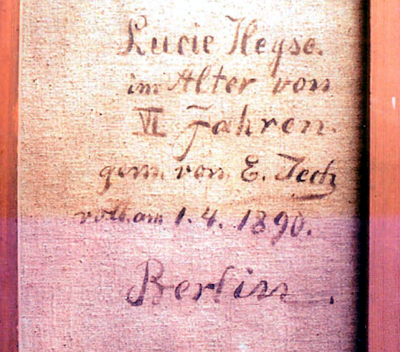 Lucie Heyse.
im Alter von
VI Jahren.
gem. von E.
voll. am 1.4. 1890.
Berlin.